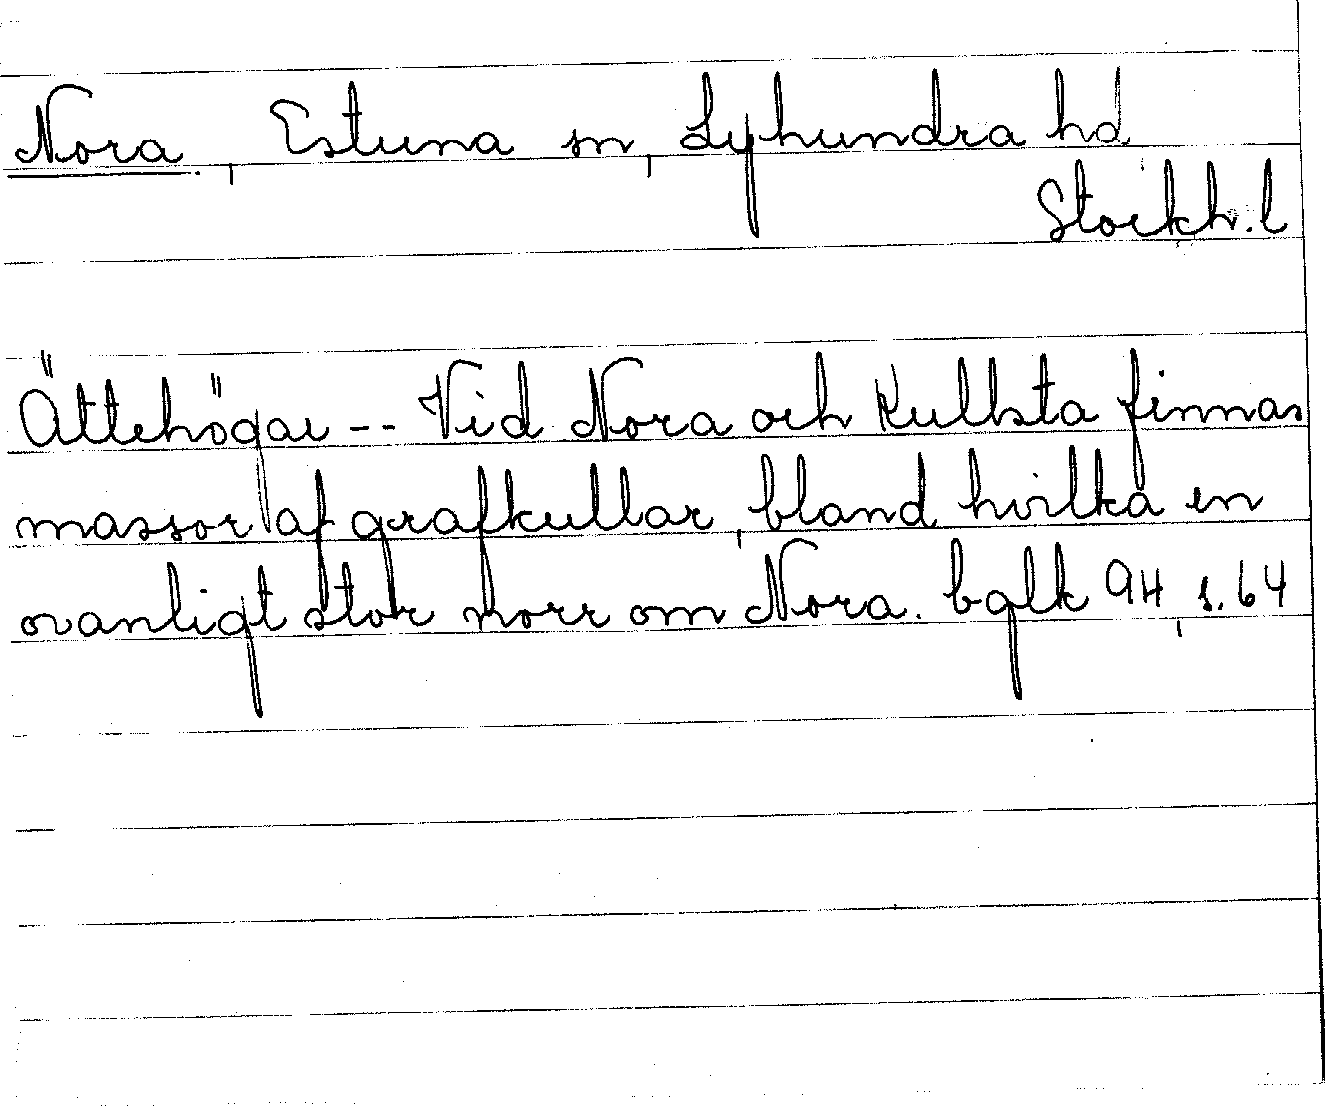 Nora, Estuna sn, Lyhundra hd
Stockh. l
Ättehögar -- Vid Nora och Kullsta finnas
massor af grafkullar, bland hvilka en
ovanligt stor norr om Nora. bglk 94, s. 64